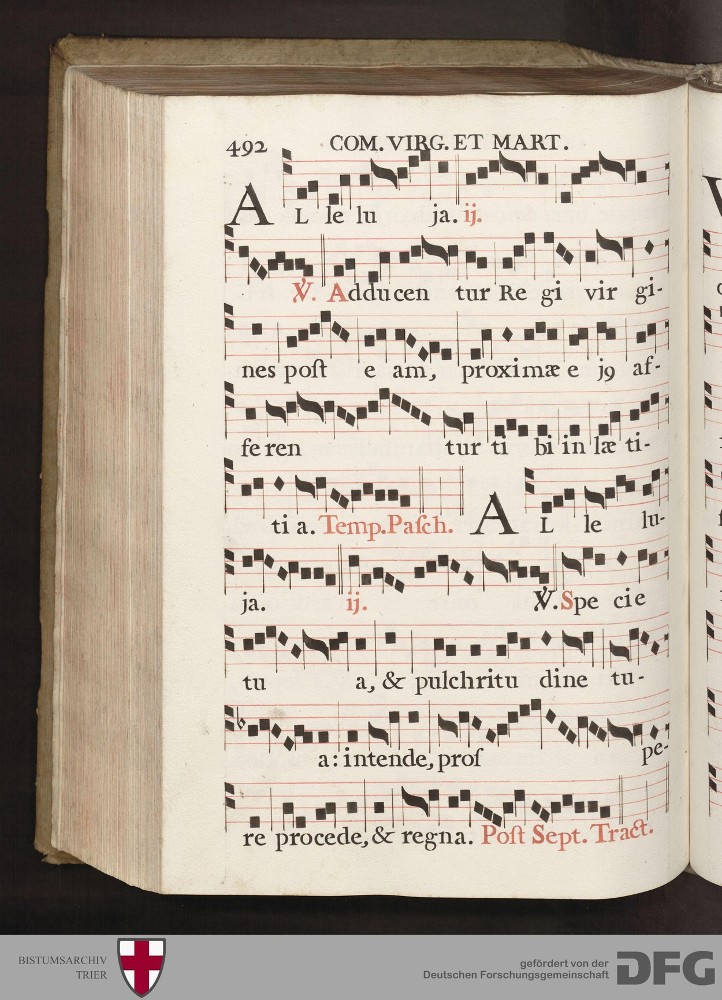 492 COM. VIRG. ET MART.
AL le lu ja. ij.
℣. Adducen tur Re gi vir gi-
nes poſt e am, proximæ e jꝯ af-
feren tur ti bi in læ ti-
ti a. Temp. Paſch. AL le lu-
ja. ij. ℣. Spe cie
tu a, & pulchritu dine tu-
a: intende, proſ pe-
re procede, & regna. Poſt Sept. Tract.
BISTUMSARCHIV
TRIER
gefördert von der
Deutschen Forschungsgemeinschaft
DFG